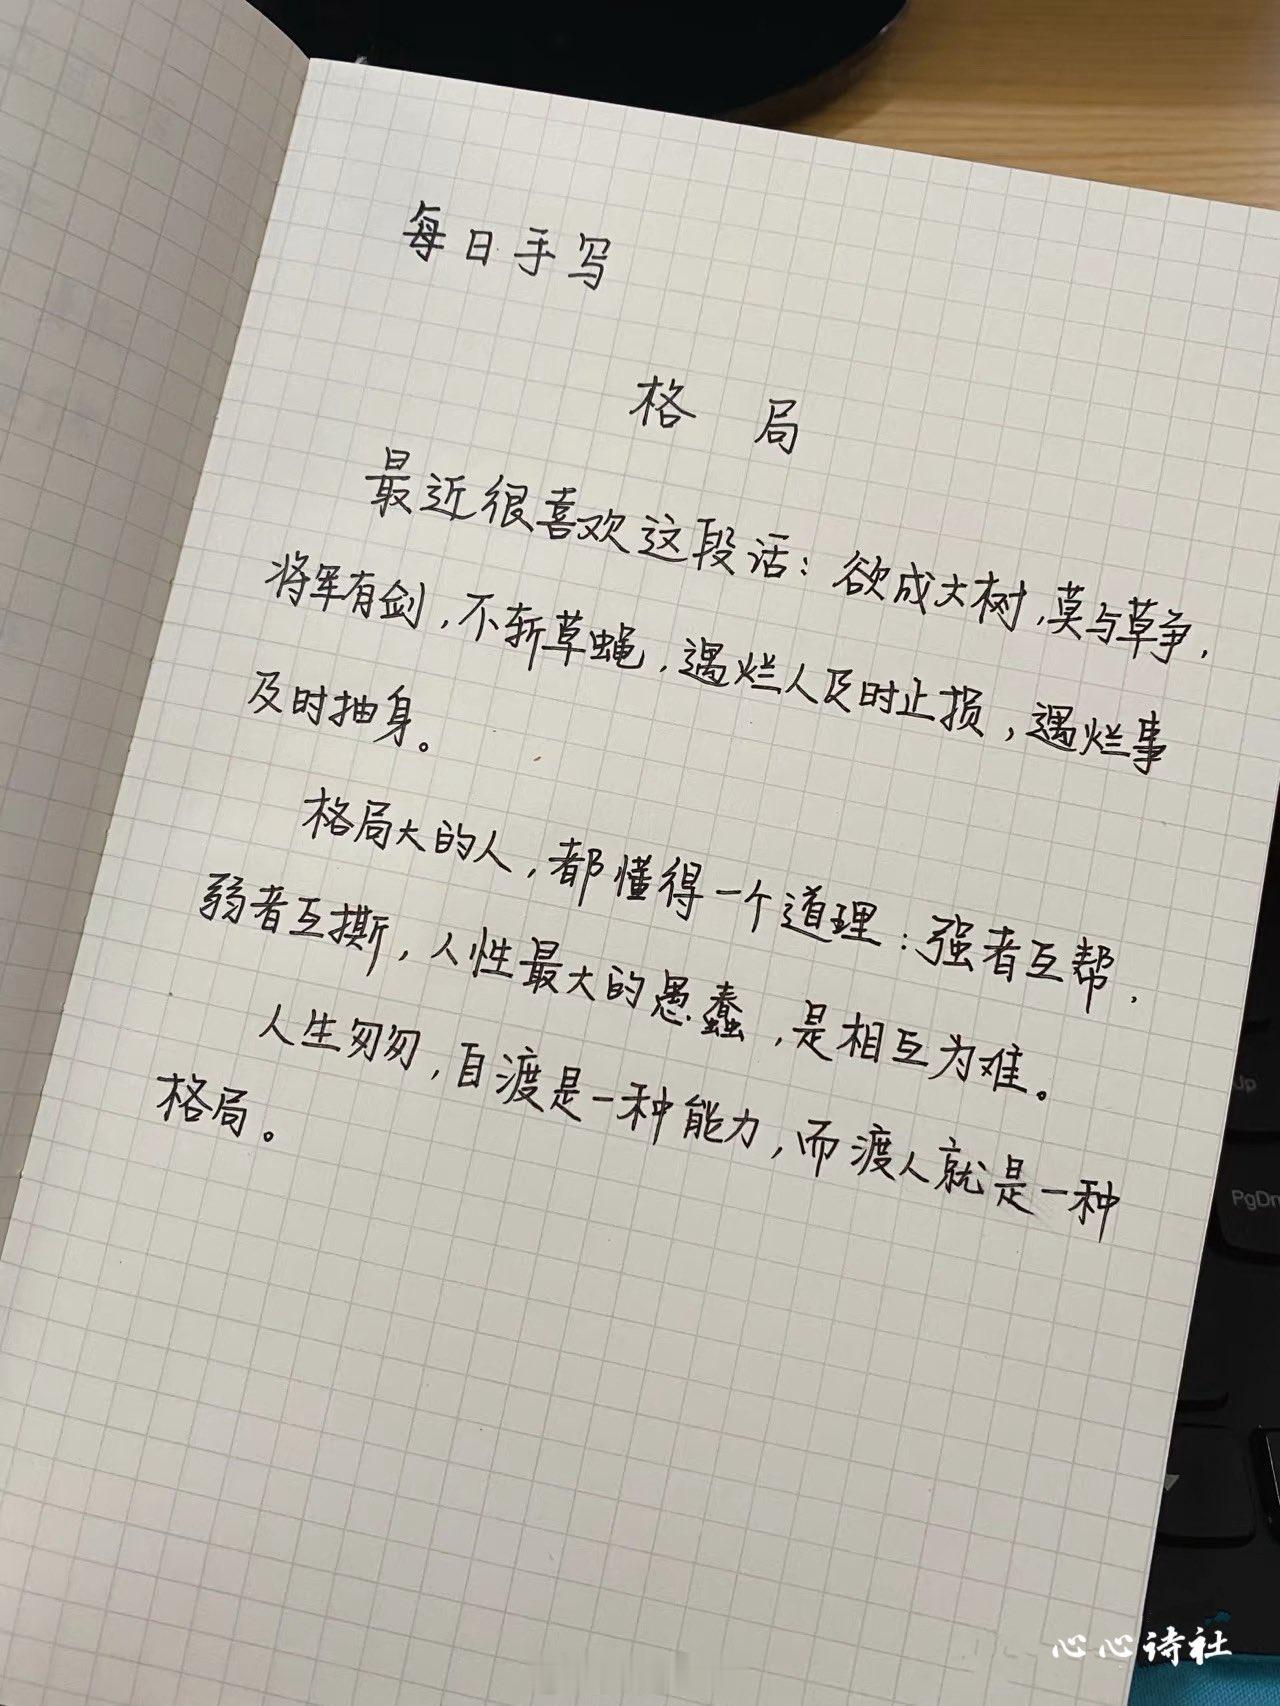 每日手写
格局
最近很喜欢这段话：欲成大树，莫与草争，
将军有剑，不斩草蝇，遇烂人及时止损，遇烂事
及时抽身。
格局大的人，都懂得一个道理：强者互帮，
弱者互撕，人性最大的愚蠢，是相互为难。
人生匆匆，自渡是一种能力，而渡人就是一种
格局。
Up
PgDn
心心诗社